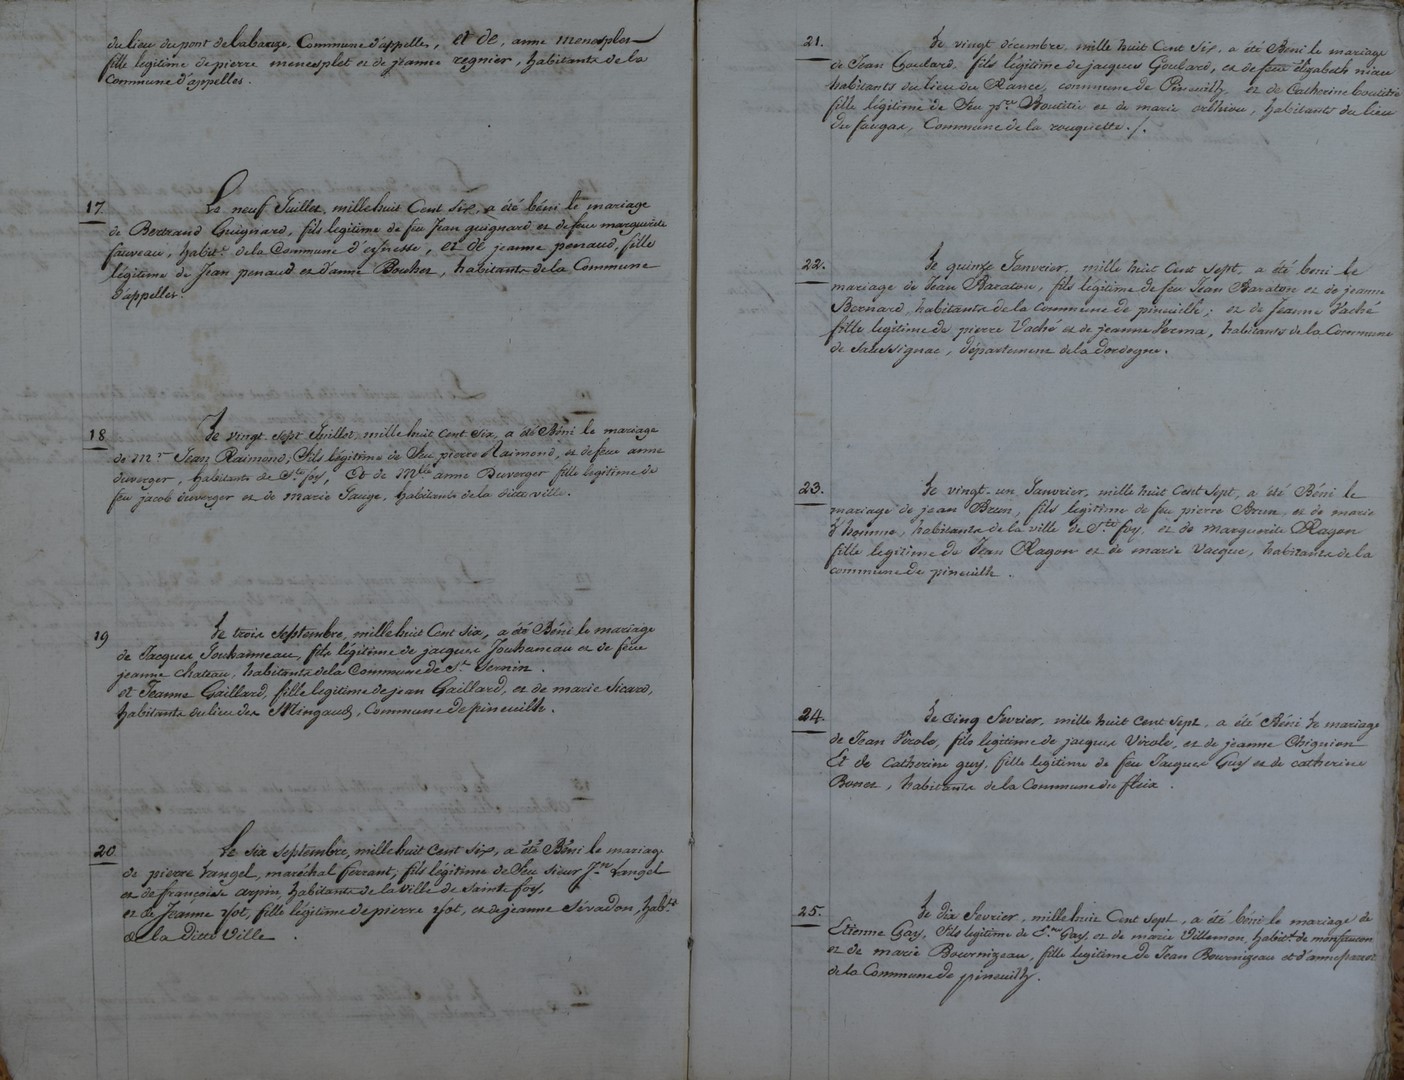 du lieu du pont de la bauze, Commune d'appelles, et de, anne menesplet
fille legitime de pierre menesplet et de jeanne regnier, habitants de la
Commune d'appelles.
17 Le neuf Juillet, mille huit Cent six, a été béni le mariage
de Bertrand Guignard, fils legitime de feu Jean guignard et de feue marguerite
fauveau, habit.s de la Commune d'eynesse, et de jeanne penaud, fille
légitime de Jean penaud et d'anne Bouhet, habitants de la Commune
d'appelles.
18 Le vingt-sept Juillet, mille huit cent six, a été Béni le mariage
de Mr Jean Raimond, Fils légitime de feu pierre Raimond, et de feue anne
duverger, habitants de Ste foy, Et de Mlle anne Duverger fille legitime de
feu jacob duverger et de Marie Sauge, habitants de la ditte ville.
19 Le trois Septembre, mille huit Cent six, a été Béni le mariage
de Jacques Jouhanneau, fils légitime de jacques Jouhaneau et de feue
jeanne chateau, habitants de la Commune de St Sernin.
et Jeanne Gaillard, fille legitime de jean Gaillard, et de marie Sicard,
habitants du lieu des Mingauds, Commune de pineuilh.
20 Le six septembre, mille huit Cent six, a été Béni le mariage
de pierre Langel, maréchal ferrant, fils légitime de feu sieur Jn Langel
et de françoise arpin, habitants de la ville de sainte foy,
et de Jeanne yot, fille légitime de pierre yot, et de jeanne Sévadon, habts
de la Ditte Ville.
21. Le vingt décembre, mille huit Cent Six, a été Béni le mariage
de Jean Goulard, fils légitime de jacques Goulard, et de feue élizabeth
habitants du lieu du Rance, commune de Pineuilh, et de Catherine
fille légitime de feu prre et de marie, habitants du lieu
du, Commune de la rouquette./.
22. Le quinze Janvrier, mille huit Cent Sept, a été béni le
mariage de Jean Baraton, fils légitime de feu Jean Baraton et de jeanne
Bernard, habitants de la Commune de pineuilh; et de Jeanne Vaché
fille legitime de pierre Vaché et de jeanne Verma, habitants de la Commune
de Saussignac, département de la dordogne.
23. Le vingt-un Janvrier, mille huit Cent Sept, a été Béni le
mariage de jean Brun, fils legitime de feu pierre Brun, et de marie
L'homme, habitants de la ville de Ste foy, et de marguerite Ragon
fille legitime de Jean Ragon et de marie Vacque, habitants de la
commune de pineuilh.
24. Le Cinq Fevrier, mille huit Cent Sept, a été Béni Le mariage
de Jean Virole, fils légitime de jacques Virole, et de jeanne Chignion
Et de Catherine guy, fille legitime de feu Jacques Guy et de catherine
Bonet, habitants de la Commune du fleix.
25. Le dix Fevrier, mille huit Cent Sept, a été béni le mariage de
Etienne Gay, Fils legitime de Gay, et de marie Villemon, habit.s de monfaucon
et de marie Bournizeau, fille legitime de Jean Bournizeau et d'anne
de la Commune de pineuilh.